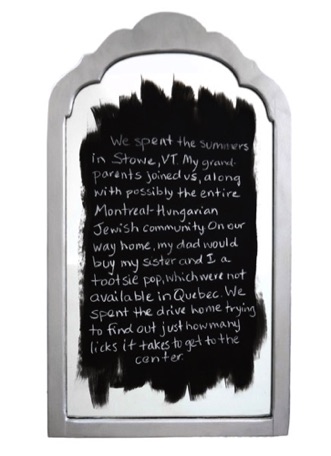 We spent the summers
in Stowe, VT. My grand-
parents joined us, along
with possibly the entire
Montreal-Hungarian
Jewish community. On our
way home, my dad would
buy my sister and I a
tootsie pop, which were not
available in Quebec. We
spent the drive home trying
to find out just how many
licks it takes to get to the
center.